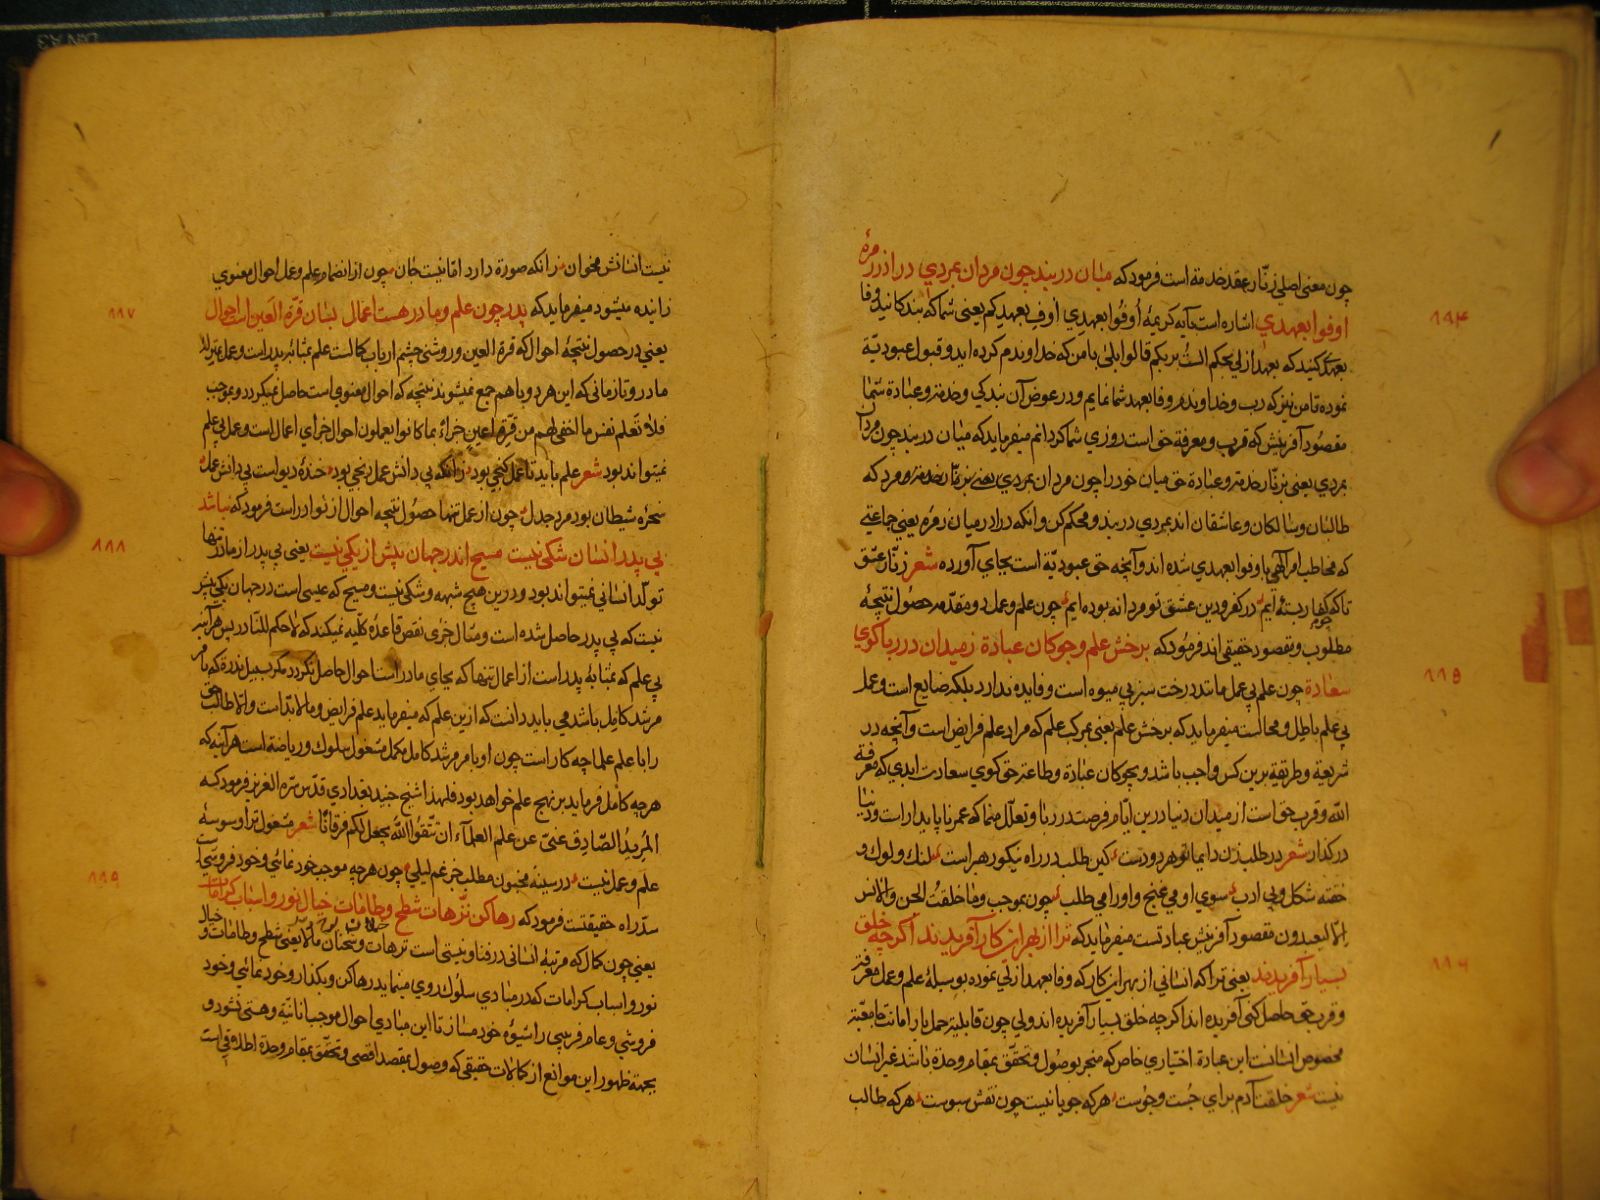 چون معنی اصلی زنّار عقد خدمة است فرمود که میان در بند چون مردان بمردي در ادر زمرۀ
اوفوا بعهدي اشاره است بآیه کریمۀ أوفُوا بعهدي أوفِ بعهدکم یعنی شما که بندکانید وفا
بعهد کنید که بعهد ازلي بحکم الستُ بربکم قالوا بلیٰ با من که خداوندم کرده اید و قبول عبودیّة
نموده تا من نیز که رب و خداوندم وفا بعهد شما نمایم و در عوض آن بندکي و خدمة و عبادة شما
مقصُود آفرینش که قرب و معرفة حق است روزي شما کردانم میفرماید که میان در بند چون مردان
بمردي یعنی بزنّار خدمة و عبادة حق میان خود را چون مردان بمردي فرمود که
طالبان و سالکان و عاشقان اند بمردي در بند و محکم کن و انکه درا در میان زمره یعنی جماعتي
که مخاطب امر الٓهي باوفوا بعهدي شده اند و آنچه حق عبودیّة است بجاي آورده شعر زنّار عشق
تا که کفار بسته ایم در کفر و دین عشق تو مردانه بوده ایم چون علم و عمل دو مقدّمه حصُول نتیجۀ
مطلوب و مقصود حقیقی اند فرمُود که برخش علم و چوکان عبادة ز میدان در ربا کوي
سعادة چون علم بي عمل مانند درخت سبز بي میوه است و فایده ندارد بلکه ضایع است و عمل
بي علم باطل و محالست میفرماید که برخش علم یعنی بمرکب علم که مراد علم فرایض است و آنچه در
شریعة و طریقة برین کس واجب باشد و بچوکان عبادة و طاعة حق کوي سعادت ابدي که معرفة
اللّه و قرب حق است از میدان دنیا درین ایّام فرصت در ربا و تعلّل منما که عمر ناپایدار است و دنیا
در کذار شعر در طلب زن دایما تو هر دو دست کین طلب در راه نیکو رهبر است لنك و لوك و
خفته شکل و بی ادب سوي او مي غنج و او را مي طلب چون بموجب وما خلقتُ الجن والانس
الّا لیعبدون مقصود آفرینش عبادتست میفرماید که ترا از بهر این کار آفریدند اکرچه خلق
بسیار آفریدند یعنی ترا که انسانی از بهر این کار که وفا بعهد ازلي نموده بوسیلۀ علم و عمل معرفة
و قرب حق حاصل کنی آفریده اند اکرچه خلق بسیار آفریده اند ولي چون قابلیّة حمل بار امانت جامعیّة
مخصوص انسانست این عبادة اختیاري خاص که منجر بوصُول و تحقّق بمقام وحدة باشد غیر انسان
نیست شعر خلقت آدم براي جُست و جُوست هر که جویا نیست چون نقش سبوست هر که طالب
١١٤
١١٥
١١٦
نیست انسانش مخوان زانکه صورة دارد امّا نیست جان چون از انضمام علم و عمل احوال معنوي
زائیده میشود میفرماید که پدر چون علم و مادر هست اعمال بسان قرّة العین است احوال
یعني در حصول نتیجۀ احوال که قرة العین و روشني چشم ارباب کمالست علم بمثابۀ پدر است و عمل بمنزلۀ
مادر و تا زمانی که این هر دو با هم جمع نمیشوند نتیجه که احوال معنوي است حاصل نمیکردد و بموجب
فلا تعلم نفس ما اخفی لهم من قرّة اعین جزاءً بما کانوا یعملون احوال جزاي اعمال است و عمل بي علم
نمیتواند بود شعر علم باید تا عمل کنجي بود زانکه بي دانش عمل رنجي بود خندۀ دیو است بي دانش عمل
سخرۀ شیطان بود مرد جدل چون از عمل تنها حصُول نتیجه احوال از نوادر است فرمود که نباشد
بي پدر انسان شکي نیست مسیح اندر جهان بیش از یکي نیست یعنی بي پدر از مادر تنها
تولّد انساني نمیتواند بود و درین هیچ شبهه و شکي نیست و مسیح که عیسی است در جهان یکي بیشتر
نیست که بي پدر حاصل شده است و مثال جزئ نقص قاعدۀ کلّیه نمیکند که لا حکم للنّادر پس هر آینه
بي علم که بمثابۀ پدر است از اعمال تنها که بجاي مادر است احوال حاصل نکردد مکر بسبیل ندرة که بامر
مرشد کامل باشد مي باید دانست که ازین علم که میفرماید علم فرایض و ما لابدّ است و الّا طالب حق
را با علم علما چه کار است چون او بامر مرشد کامل مکمل مشغول سلوك و ریاضة است هر آینه که
هرچه کامل فرماید بر نهج علم خواهد بود فلهذا شیخ جنید بغدادي قدّس سّره العزیز فرمود که
المُریدُ الصّادق غنيّ عن علم العلماء ان تتّقُوا اللّٰه یجعل لکم فرقاناً شعر مشغول ترا وسوسۀ
علم و عمل نیست در سینۀ مجنون مطلب جز غم لیلي چون هرچه موجب خود نمائي و خود فروشي است
سدّ راه حقیقتست فرمود که رها کن ترّهات شطح و طامات خیال نور و اسباب کرامات
یعني چون کمال که مرتبۀ انسانی در فنا و نیستي است ترهات و سخنان یعنی شطح و طامات و خیال
نور و اسباب کرامات که در مبادي سلُوك روي مینماید رها کن و بکذار و خود نمائي و خود
فروشي و عام فریبي را شیوۀ خود مساز تا این مبادي احوال موجب انانیّة و هستي نشود و
بجهة ظهور این موانع از کمالات حقیقي که وصول بمقصد اقصی و تحقّق بمقام وحدة اطلاقي است
١١٧
١١٨
١١٩